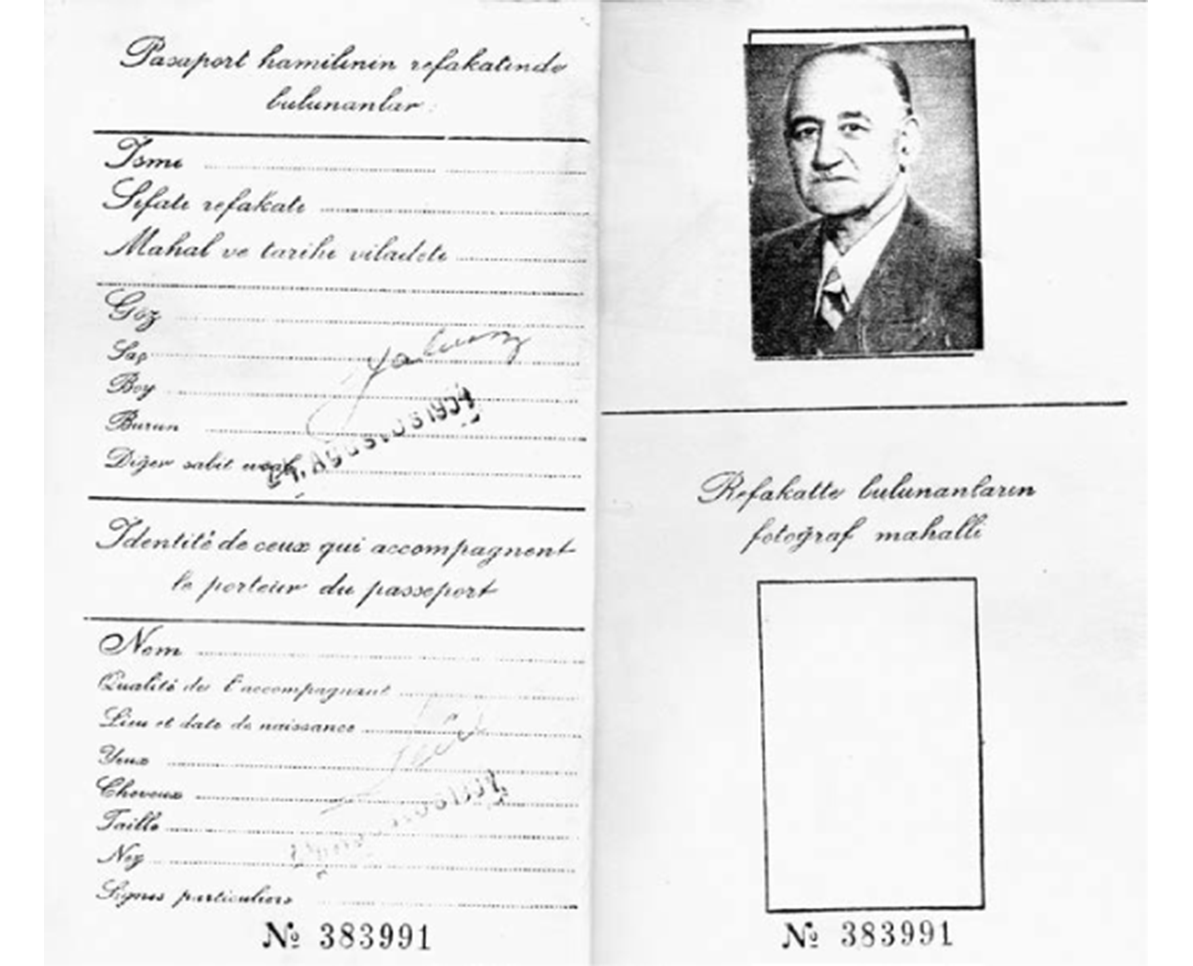 Pasaport hamilinin refakatinde
bulunanlar
İsmi
Sıfatı refakati
Mahal ve tarihi viladeti
Göz
Saç
Boy
Burun
Diğer sabit
24. Ağustos 1954
Identité de ceux qui accompagnent
le porteur du passeport
Nom
Qualité de l'accompagnant
Lieu et date de naissance
Yeux
Cheveux
Taille
Nez
Signes particuliers
№ 383991
Refakatte bulunanların
fotoğraf mahalli
№ 383991